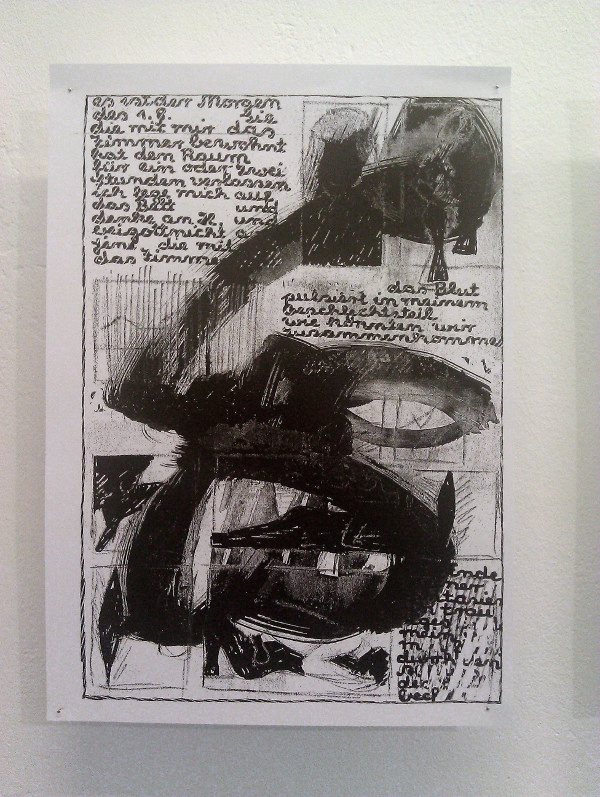 es ist der Morgen
des 1.8. Sie
die mit mir das
Zimmer bewohnt
hat den Raum
für ein oder zwei
Stunden verlassen
ich lege mich auf
das Bett und
denke an H. und
beigott nicht a
jene, die mit
das Zimme
das Blut
pulsiert in meinem
Geschlechtsteil
wie könnten wir
zusammenkomme
ende
ner
trau
mein
durch
der